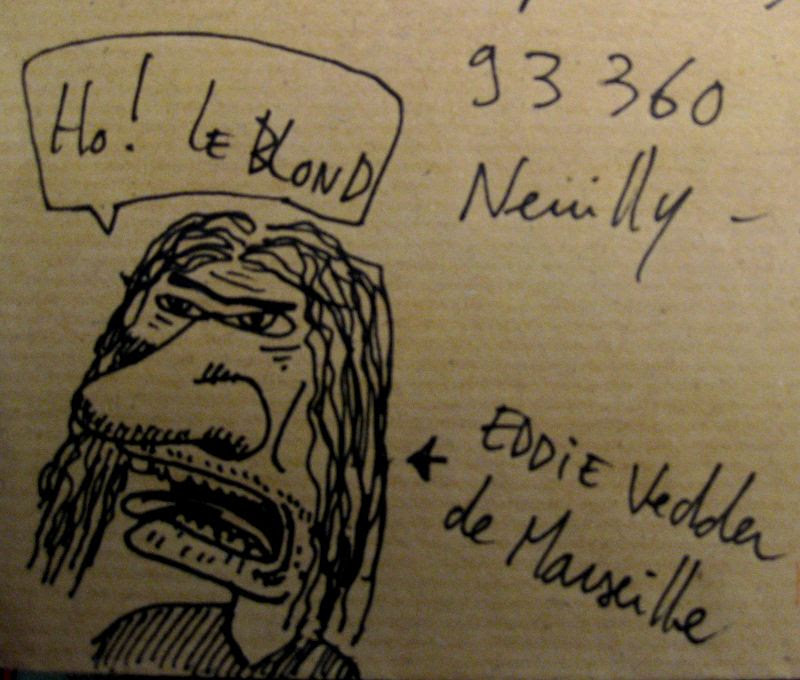 Ho! LE BLOND
93360
Neuilly -
EDDIE Vedder
de Marseille